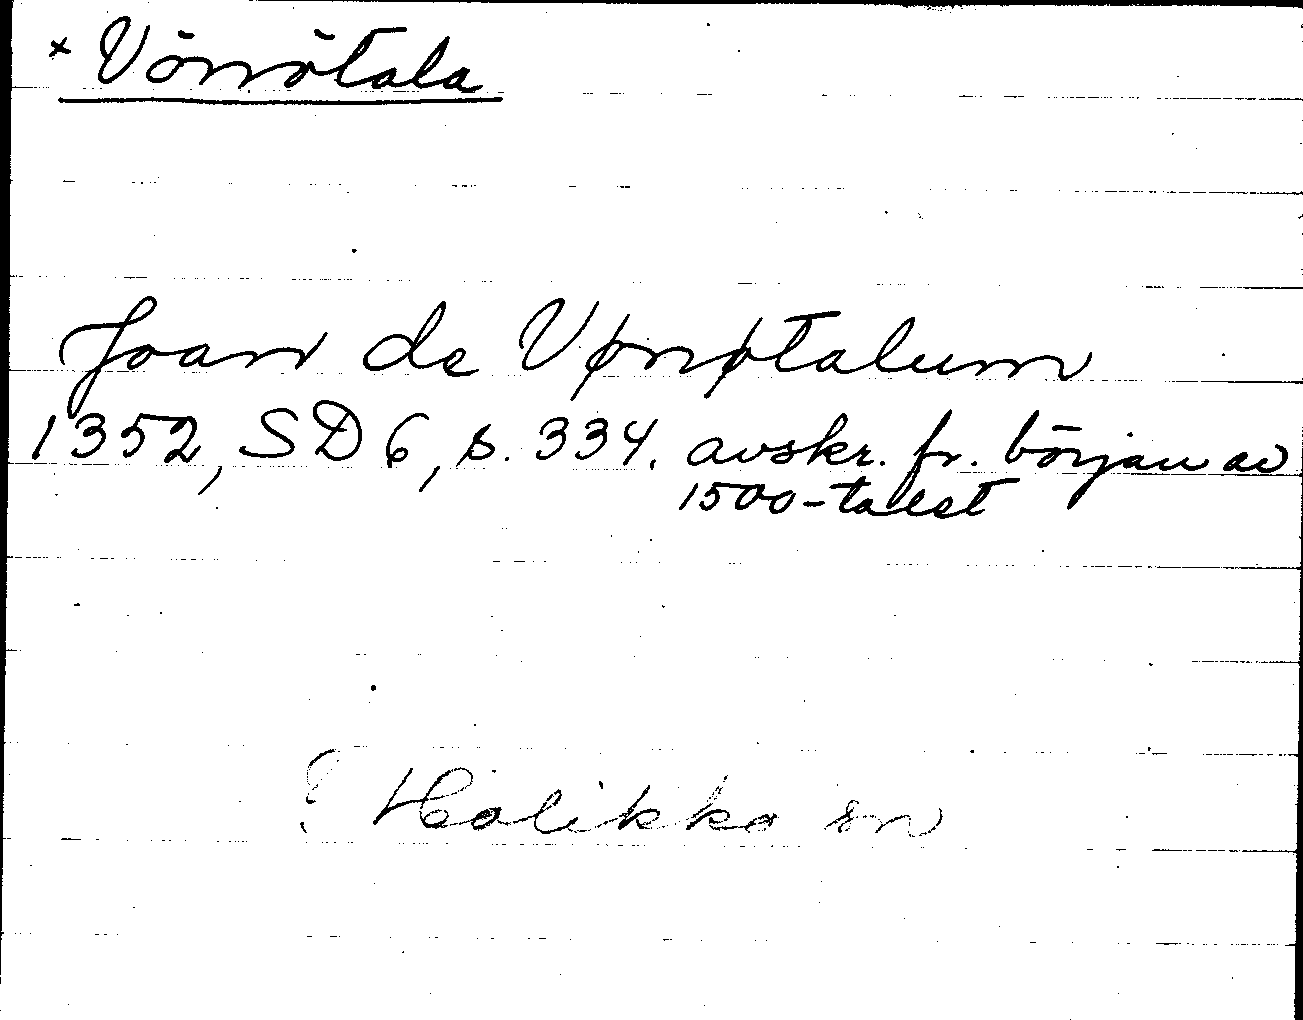 × Vönötala
Joan de Vønøtalum
1352, SD 6, s. 334. avskr. fr. början av
1500-talet
? Halikko sn